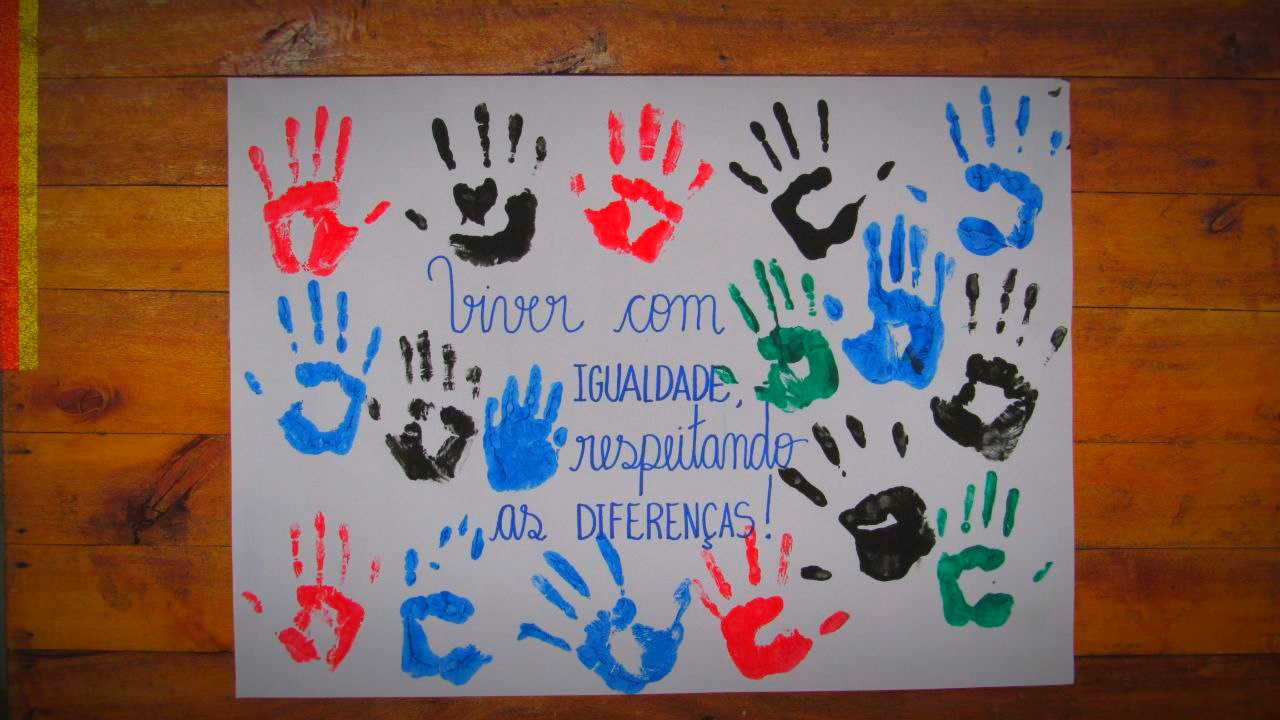 Viver com
IGUALDADE,
respeitando
as DIFERENÇAS!